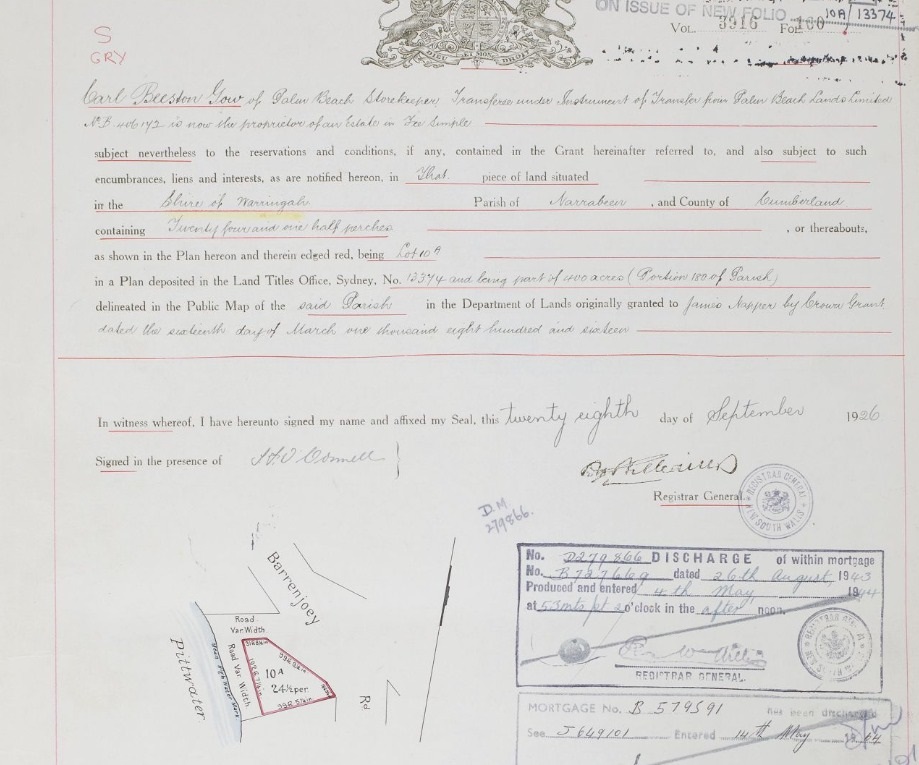 ON ISSUE OF NEW FOLIO 10A/13374
VOL. 3916 FOL. 160
S
GRY
DIEU ET MON DROIT
Carl Beeston Gow of Palm Beach Storekeeper, Transferee under Instrument of Transfer from Palm Beach Lands Limited
No. B 406172 is now the proprietor of an Estate in Fee Simple
subject nevertheless to the reservations and conditions, if any, contained in the Grant hereinafter referred to, and also subject to such
encumbrances, liens and interests, as are notified hereon, in That piece of land situated
in the Shire of Warringah Parish of Narrabeen, and County of Cumberland
containing Twenty four and one half perches, or thereabouts,
as shown in the Plan hereon and therein edged red, being Lot 10A
in a Plan deposited in the Land Titles Office, Sydney, No. 13374 and being part of 400 acres (Portion 180 of Parish)
delineated in the Public Map of the said Parish in the Department of Lands originally granted to James Napper by Crown Grant
dated the sixteenth day of March one thousand eight hundred and sixteen
In witness whereof, I have hereunto signed my name and affixed my Seal, this twenty eighth day of September 1926
Signed in the presence of
Registrar General.
REGISTRAR GENERAL NEW SOUTH WALES
D.M
279866.
Barrenjoey
Rd
Road
Var. Width
Road Var. Width
High Water Mark
Pittwater
10A
24½ per.
No. D279866 DISCHARGE of within mortgage
No. B727669 dated 26th August 1943
Produced and entered 4th May 1944
at 53 mts pt 2 o'clock in the after noon.
REGISTRAR GENERAL.
MORTGAGE No. B 579591 has been discharged
See J649101 Entered 14th May 1964